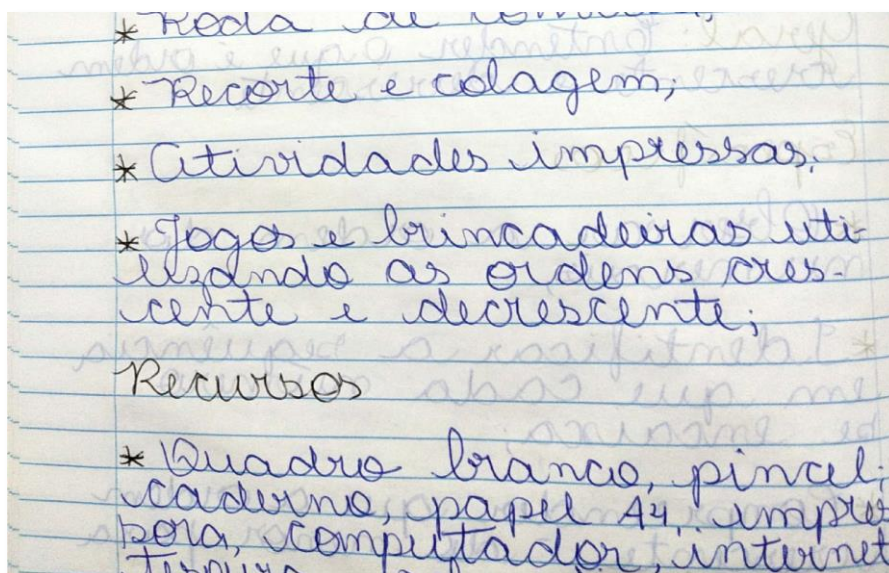 * Roda de conversa;
* Recorte e colagem;
* Atividades impressas.
* Jogos e brincadeiras uti-
lizando as ordens cres-
cente e decrescente;
Recursos
* Quadro branco, pincel,
caderno, papel A4, impres
sora, computador, internet